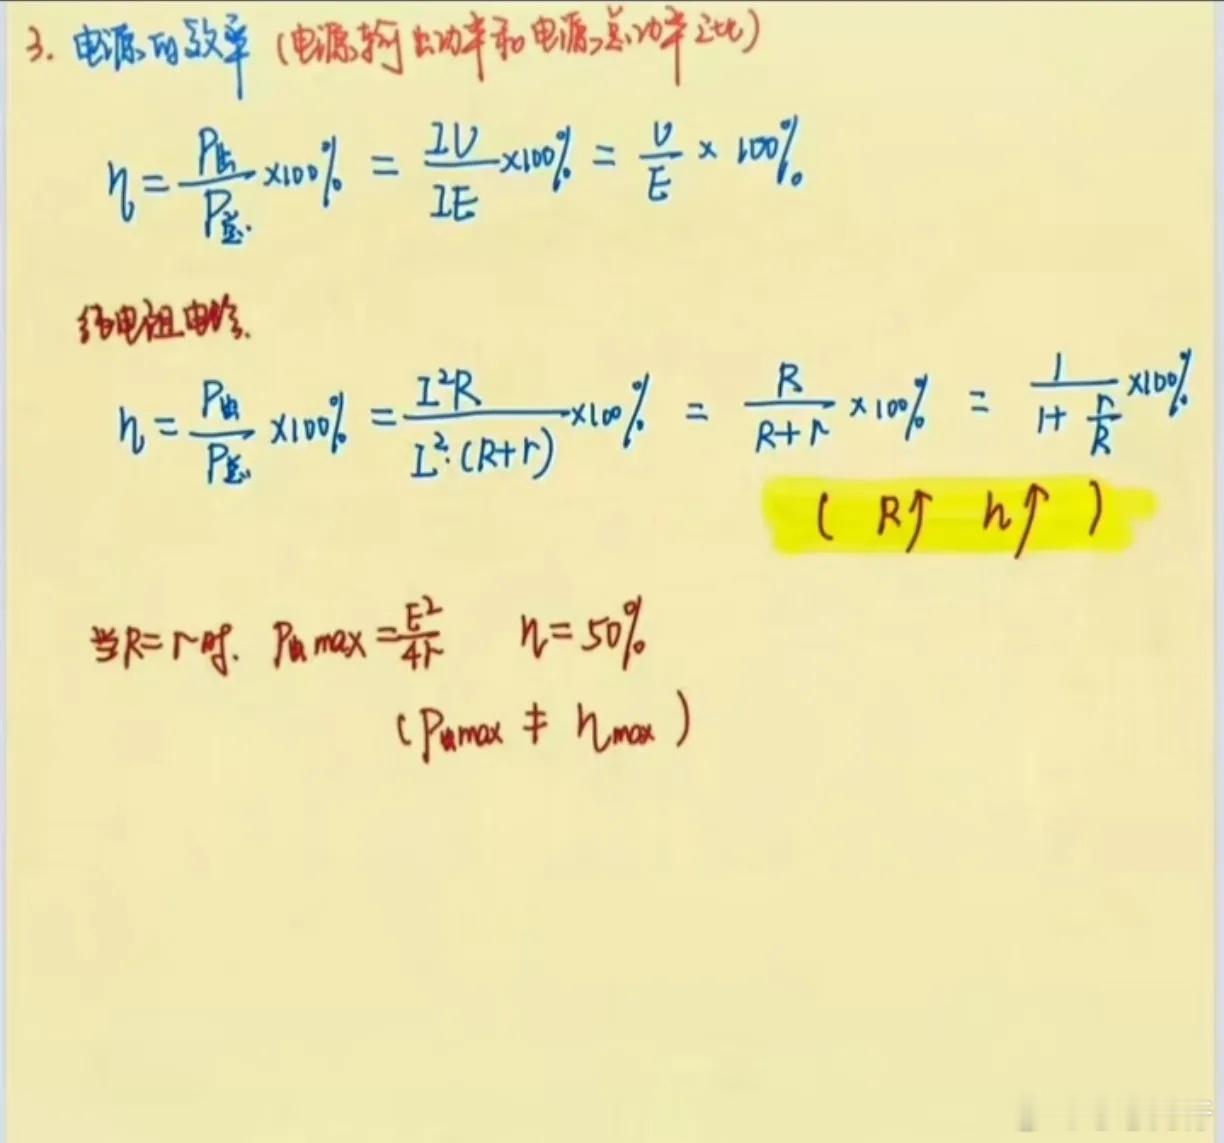 3. 电源的效率 (电源输出功率和电源总功率之比)
η = P出/P总 ×100% = IU/IE ×100% = U/E × 100%
纯电阻电路.
η = P出/P总 ×100% = I²R/I²·(R+r) ×100% = R/R+r ×100% = 1/1+r/R ×100%
( R↑ η↑ )
当R=r时. P出max = E²/4r η=50%
(P出max ≠ ηmax)